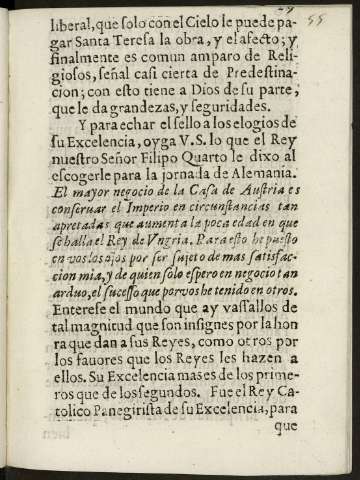 55
liberal, que solo con el Cielo le puede pa-
gar Santa Teresa la obra, y el afecto; y
finalmente es comun amparo de Reli-
giosos, señal casi cierta de Predestina-
cion; con esto tiene a Dios de su parte,
que le da grandezas, y seguridades.
Y para echar el sello a los elogios de
su Excelencia, oyga V.S. lo que el Rey
nuestro Señor Filipo Quarto le dixo al
escogerle para la jornada de Alemania.
El mayor negocio de la Casa de Austria es
conseruar el Imperio en circunstancias tan
apretadas que aumenta la poca edad en que
se halla el Rey de Vngria. Para esto he puesto
en vos los ojos por ser sujeto de mas satisfac-
cion mia, y de quien solo espero en negocio tan
arduo, el sucesso que por vos he tenido en otros.
Enterese el mundo que ay vassallos de
tal magnitud que son insignes por la hon
ra que dan a sus Reyes, como otros por
los fauores que los Reyes les hazen a
ellos. Su Excelencia mas es de los prime-
ros que de los segundos. Fue el Rey Ca-
tolico Panegirista de su Excelencia, para
que